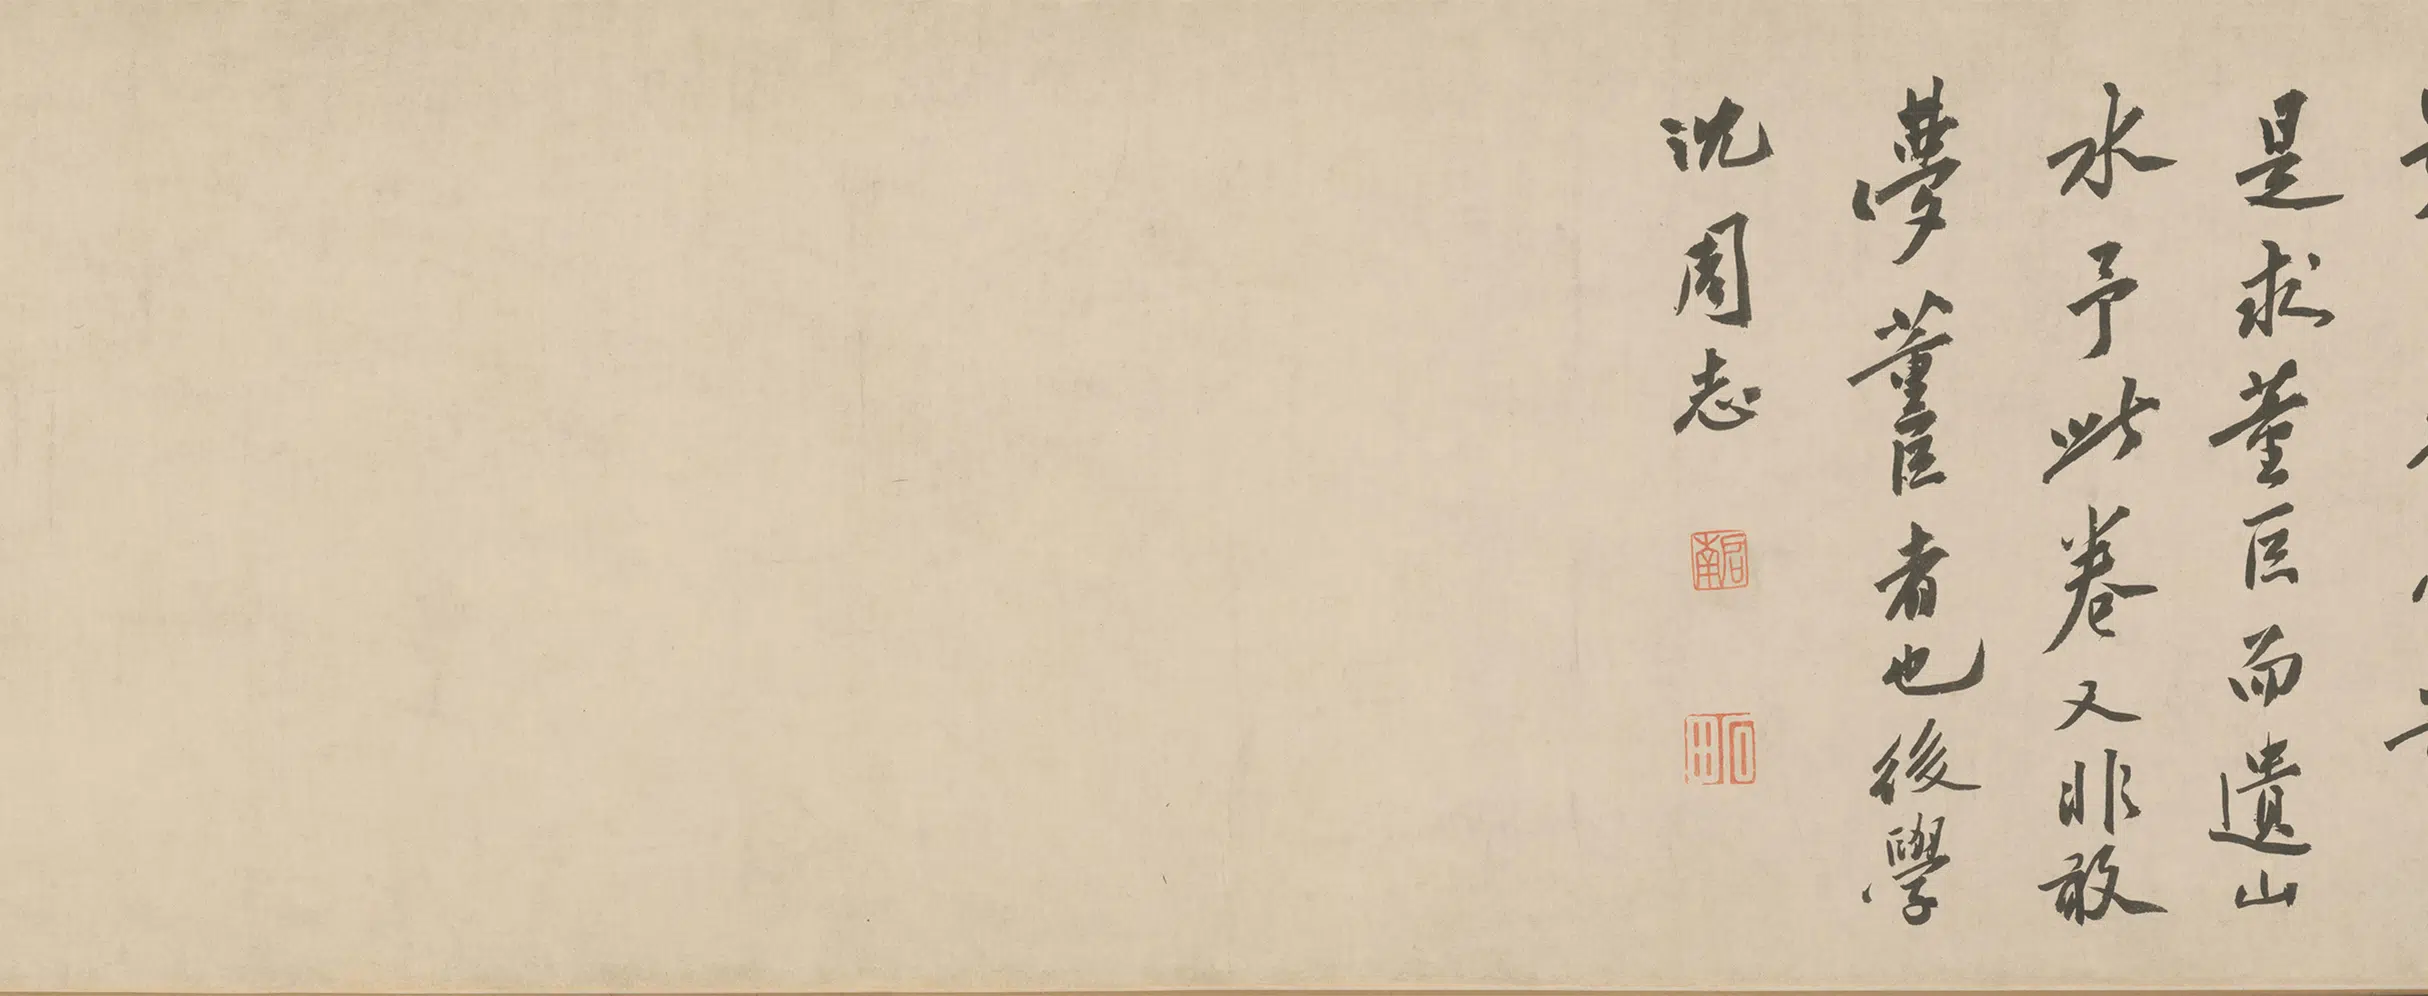 是求董巨而遺山
水予此卷又非敢
夢董巨者也後學
沈周志
啟南
石田